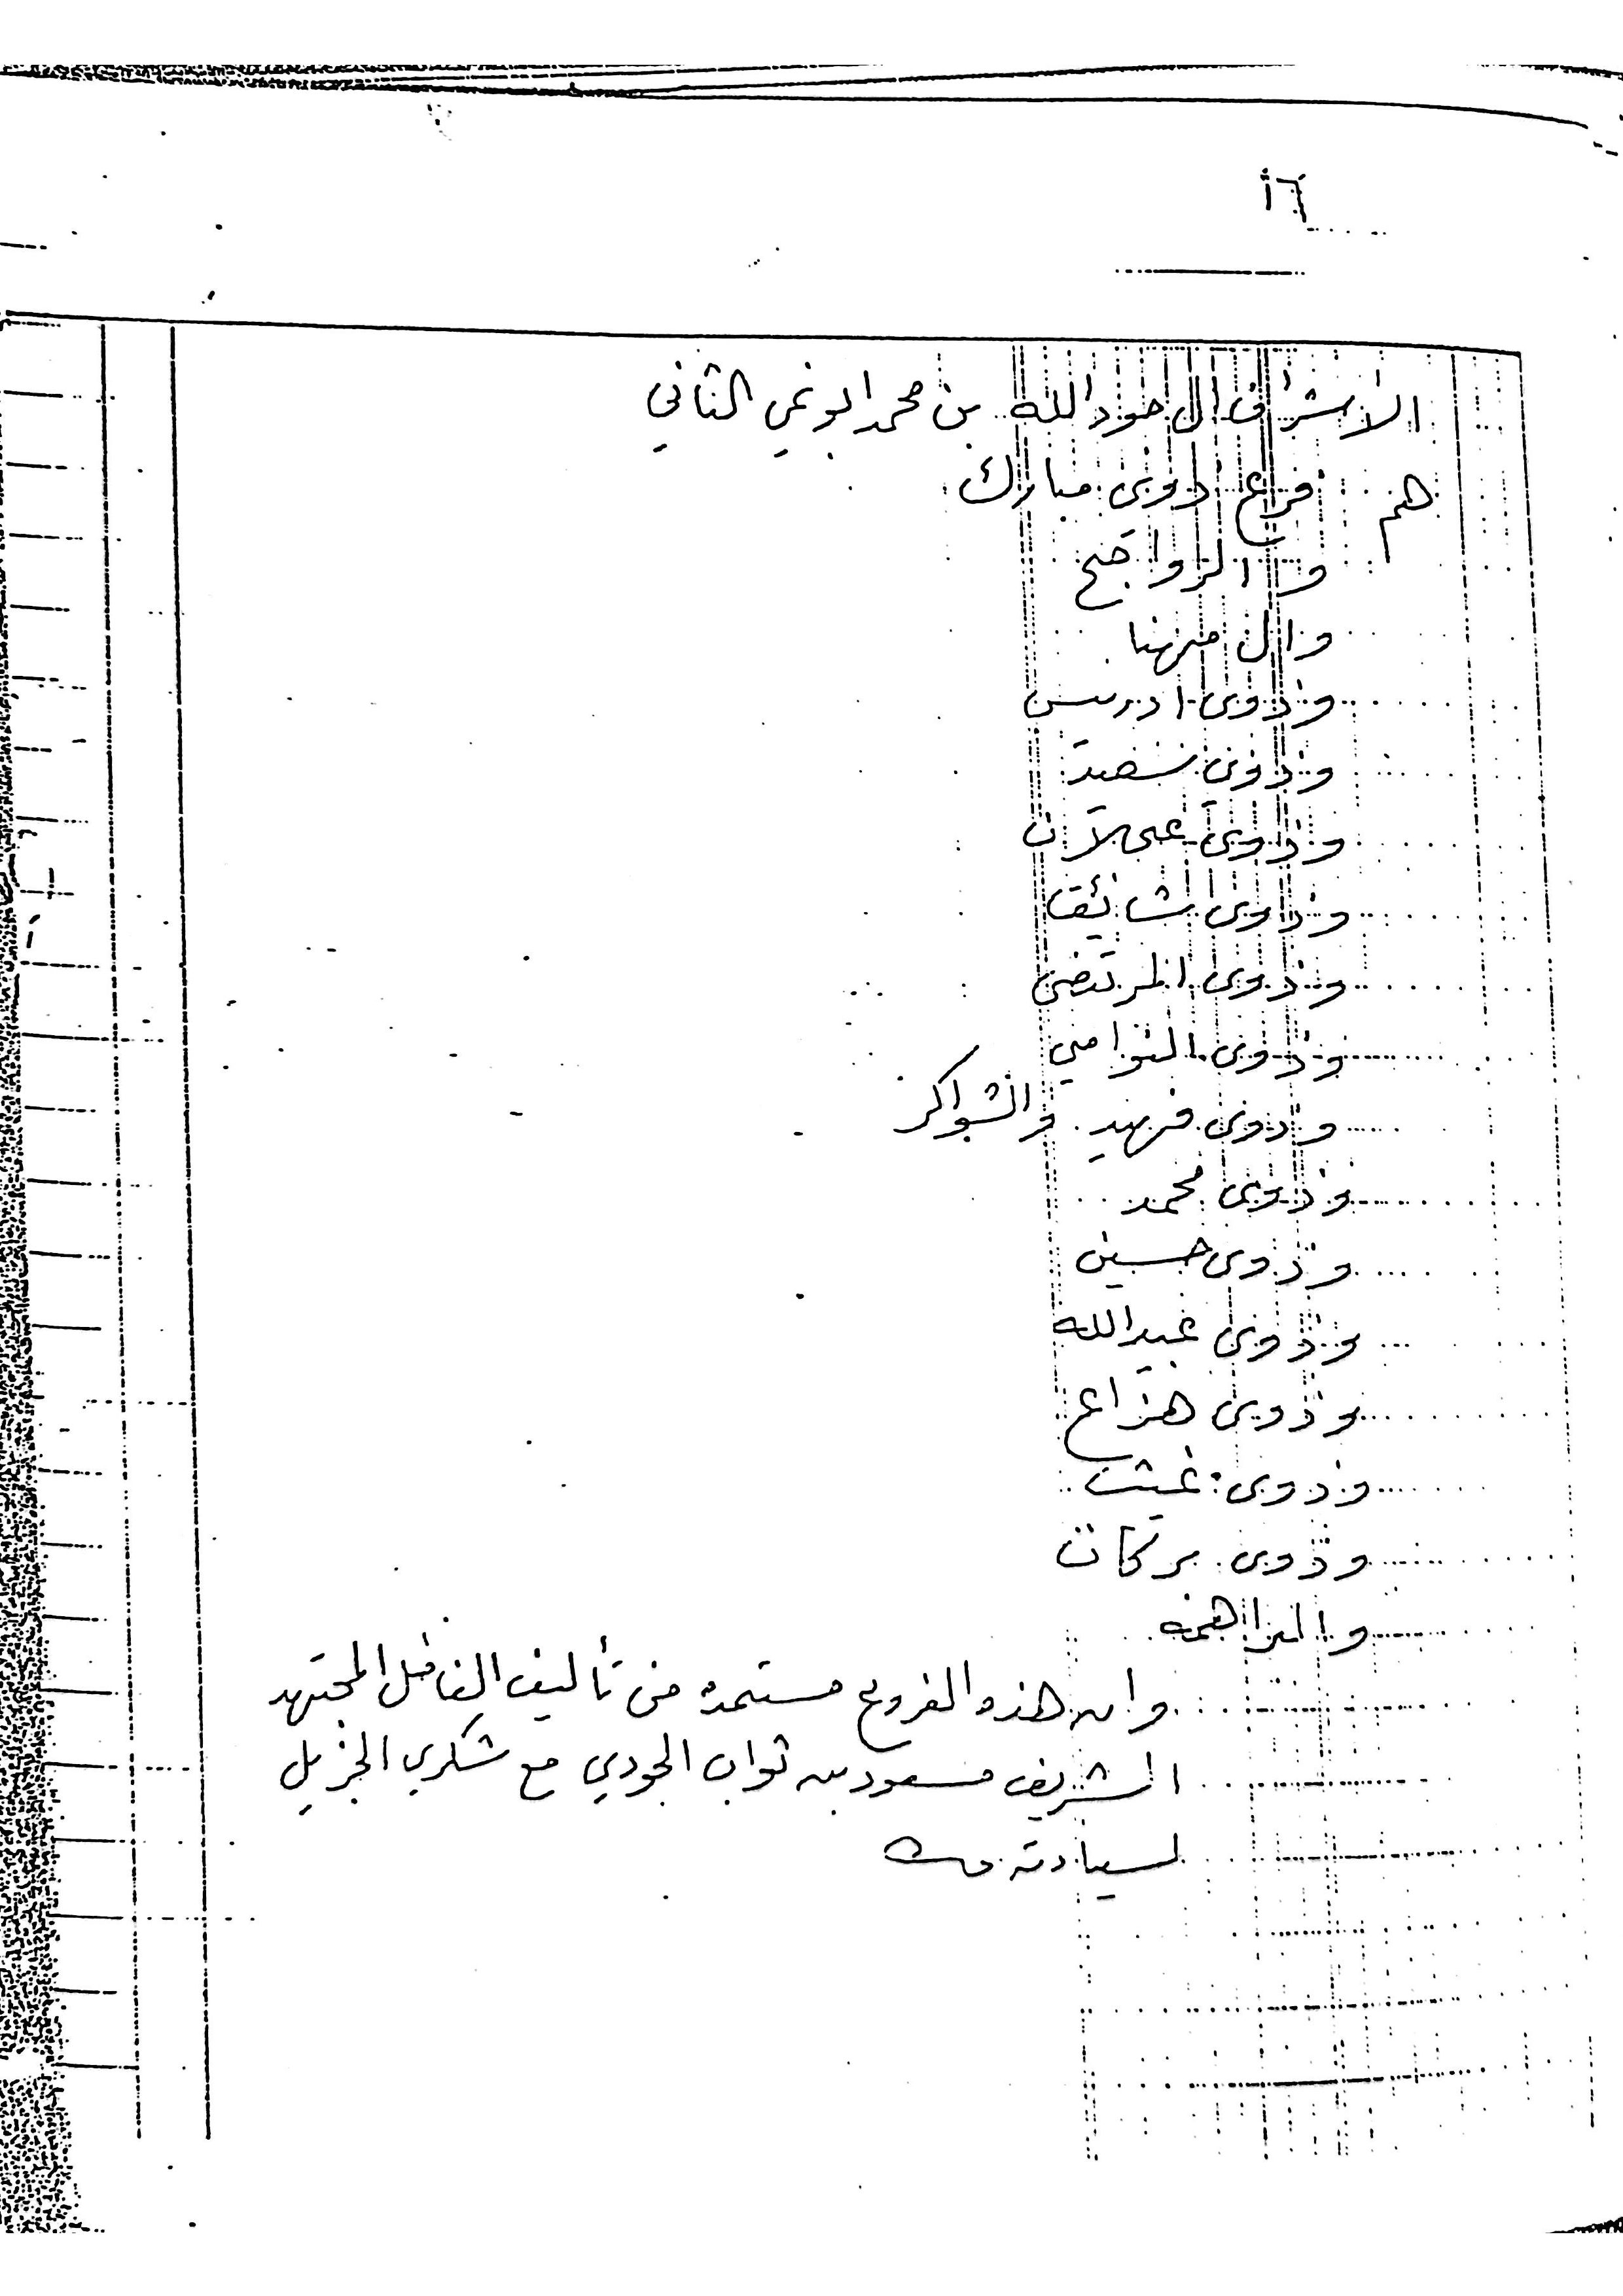 ٦أ
الأشراف ال جود الله بن محمد ابو نمي الثاني
هم فرع ذوي مبارك
و الرواجح
وال مهنا
وذوي ادريس
وذوي
وذوي عجلان
وذوي شائق
وذوي المرتضى
وذوي
وذوي فهيد والشواكر
وذوي محمد
وذوي حسين
وذوي عبدالله
وذوي هزاع
وذوي غيث
وذوي بركات
والبراهمه
وان هذه الفروع مستمده من تأليف الفاضل المجتهد
الشريف مسعود بن ثواب الجودي مع شكري الجزيل
لسيادته